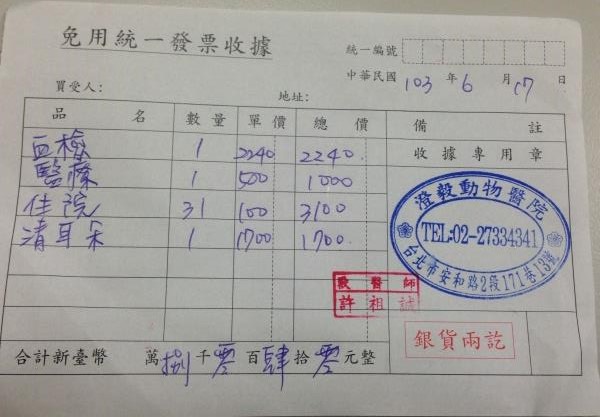 免用統一發票收據
統一編號
中華民國 103 年 6 月 17 日
買受人：
地址：
品名 數量 單價 總價 備註
血檢 1 2240 2240.
收據專用章
醫療 1 500 1000
住院 31 100 3100
清耳朵 1 1700 1700.
澄毅動物醫院
TEL:02-27334341
台北市安和路2段171巷13號
獸醫師
許祖誠
銀貨兩訖
合計新臺幣 萬 捌 千 零 百 肆 拾 零 元整